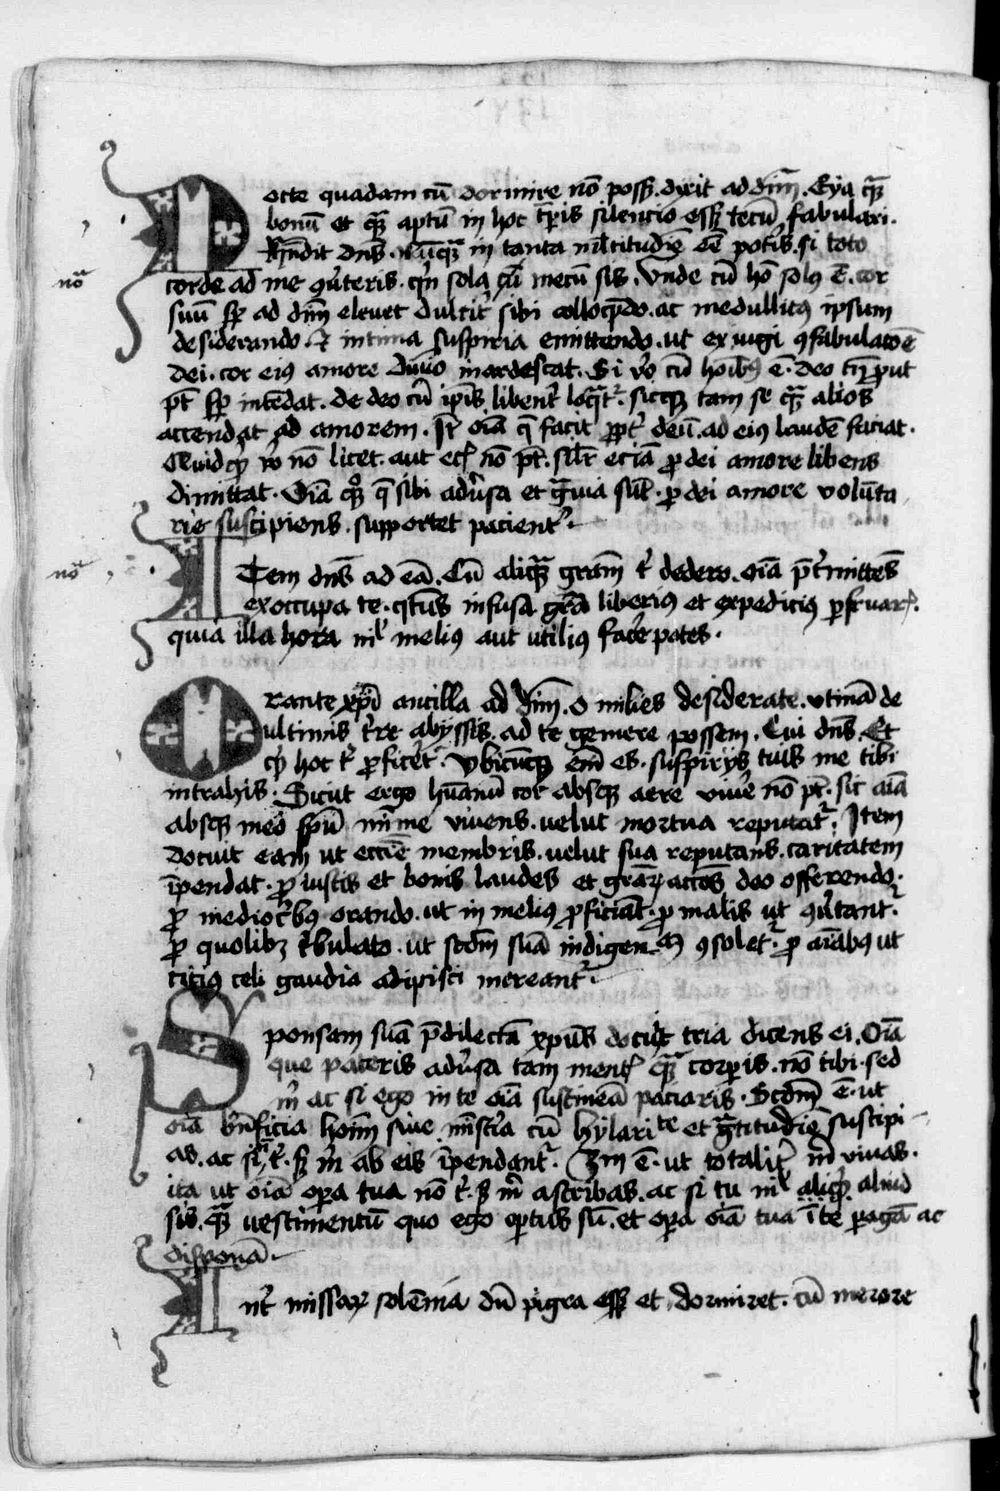 Nocte quadam cū dormire nō poss3. dixit ad dn̄m. Eya qͣ3
bonū et qͣ3 aptū in hoc tp̄is silencio ess3 tecū fabulari.
Rn̄dit dn̄s. Nūqͣ3 in tanta ml̓titudīe eē pot̓is. si toto
nōͣ corde ad me ꝯu̓teris. qn̄ sola cū mecū sis. Vnde cū hō solꝰ ē. cor
suū sp̄ ad dn̄m eleuet dulcit̓ sibi colloqn̄do. ac medullitꝰ ipsum
desiderando. ⁊ intima suspiria emittendo. ut ex iugi ꝯfabulacōe
dei. cor eiꝰ amore diuīo inardescat. Si v̓o cū hoībꝫ ē. deo inq̄ꝫ prout
pt̄ sp̄ intēdat. de deo cū ip̄is libent̓ loqͣt̓. sicqꝫ tam se qͣ3 alios
accendat ad amorem. Itꝫ oīa q̄ facit ꝓpt̓ deū. ad eiꝰ laudē faciat.
Quidqͥd v̓o nō licet. aut ecꝫ nō pt̄. sil̓r eciā ꝓ dei amore libens
dimittat. Oīa qꝫ q̄ sibi adu̓sa et gͣuia sūt. ꝓ dei amore volūta
rie suscipiens. supportet pacient̓.
nōͣ Item dn̄s ad eā. Cū aliqͣ3 gram̄ t̓ dedero. oīa p̄t̓mittēs
exoccupa te. qͣtꝰ infusa gr̄a liberiꝰ et expediciꝰ ꝑfruar̓.
quia illa hora nil̓ meliꝰ aut utiliꝰ fac̓e potes.
Orante xp̄i ancilla ad dn̄m. o milies desiderate. vtinā de
ultimis t̓re abyssis. ad te gemere possem. Cui dn̄s. Et
qͥd hoc t̓ ꝓficet̓. Vbicūqꝫ em̄ es. suspirijs tuis me tibi
intrahis. Sicut ergo hūanū cor absqꝫ aere viue̓ nō pt̄. sic aīa
absqꝫ meo sp̄u mīme viuens. velut mortua reputat̓. Item
docuit eam ut eccīe membris. velut sua reputans. caritatem
īpendat. ꝓ iustis et bonis laudes et gr̄aꝝ accōes deo offerendo.
ꝓ mediocͥbꝰ orando. ut in meliꝰ ꝓficiāt. ꝓ malis ut ꝯu̓tant̓.
ꝓ quolibꝫ t̓bulato. ut scdm̄ suā indigen ꝯsolet̓. ꝓ aīabꝰ ut
cicius celi gaudia adipisci mereant̓.
Sponsam suā p̄dilectā xp̄us docuit tria dicens ei. Oīa
que pateris adu̓sa tam ment̓ qͣ3 corꝑis. nō tibi. sed
m̄ ac si ego in te oīa sustineā paciaris. Scdm̄ ē. ut
oīa bn̄ficia hoīm siue mīst̓ia cū hylaritͣte et gͣtitudīe suscipi
as. ac sīͣ t̓. s3 m̄ ab eis īpendant̓. 3m ē. ut totalit̓ m̄ viuas.
ita ut oīa oꝑa tua nō t̓. s3 m̄ ascribas. ac si tu nil̓ aliud
sis. qͣ3 uestimentū quo ego oꝑtus sū. et oꝑa oīa tua ī te ꝑagā ac
disponā.
Int̓ missaꝝ solēnia dū pigra ess3 et dormiret. cū merore